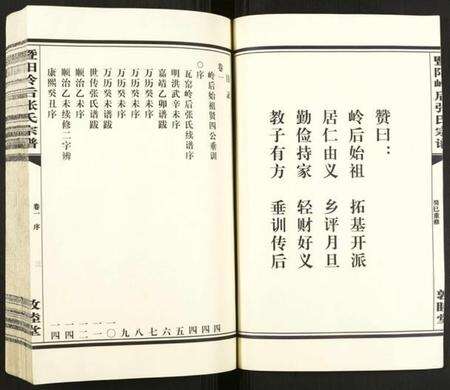 赞曰：
岭后始祖　拓基开派
居仁由义　乡评月旦
勤俭持家　轻财好义
教子有方　垂训传后
癸巳重修
卷一
岭后始祖贤四公垂训
〇序
瓦窑岭后张氏续谱序
明洪武辛未序
嘉靖乙卯谱跋
万历癸未序
万历癸未序
万历癸未跋
世传张氏谱跋
顺治乙未序
顺治乙未续修二字辨
康熙癸丑序
四
四
四
五
六
七
八
九
一〇
一一
一二
一四
一四
暨阳岭后张氏宗谱
卷一 序
三
敦睦堂